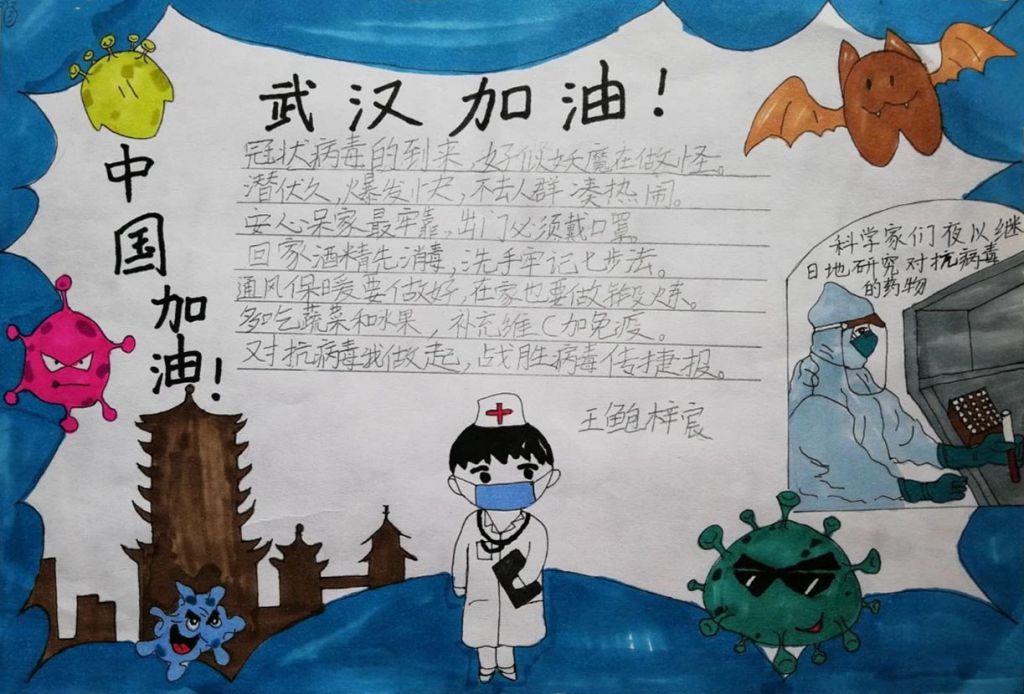 武汉加油!
中国加油!
冠状病毒的到来,好似妖魔在做怪。
潜伏久,爆发快,不去人群凑热闹。
安心呆家最牢靠,出门必须戴口罩。
回家酒精先消毒,洗手牢记七步法。
通风保暖要做好,在家也要做锻炼。
多吃蔬菜和水果,补充维C加免疫。
对抗病毒我做起,战胜病毒传捷报。
王鲍梓宸
科学家们夜以继
日地研究对抗病毒
的药物